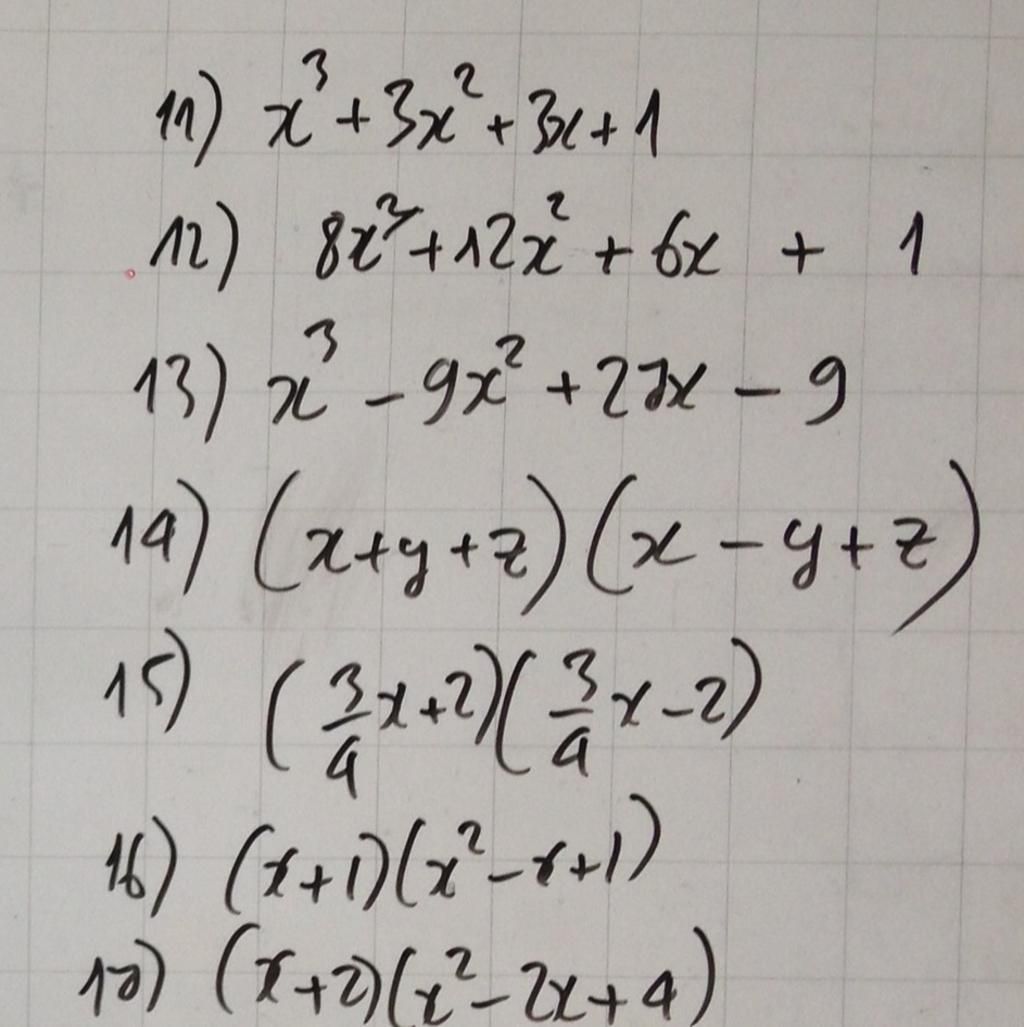 11) x³ + 3x² + 3x + 1
12) 8x³ + 12x² + 6x + 1
13) x³ - 9x² + 27x - 9
14) (x+y+z)(x-y+z)
15) (3/4 x+2)(3/4 x-2)
16) (x+1)(x²-x+1)
17) (x+2)(x²-2x+4)